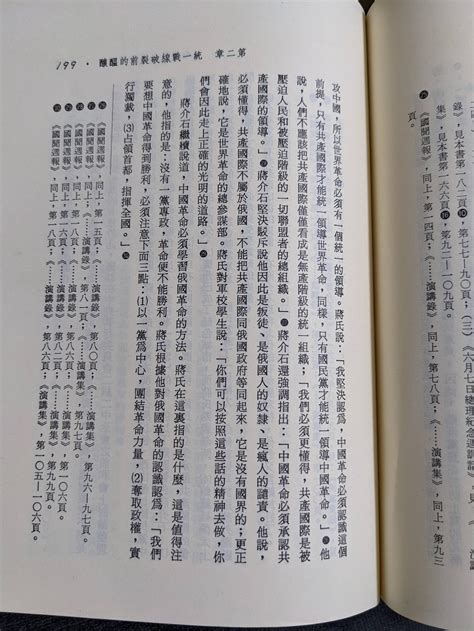 第二章　統一戰線破裂前的醞釀・199
攻中國,所以世界革命必須有一個統一的領導。蔣氏說:「我堅決認為,中國革命必須認識這個
前提,只有共產國際才能統一領導世界革命,同樣,只有國民黨才能統一領導中國革命。」㉖他
說,人們不應該把共產國際僅僅看成是無產階級的統一組織;「我們必須更懂得,共產國際是被
壓迫人民和被壓迫階級的一切聯盟者的總組織。」㉗蔣介石還強調指出:「中國革命必須承認共
產國際的領導。」㉘蔣介石堅決駁斥說他因此是叛徒、是俄國人的奴隸、是瘋人的譴責。他說,
必須懂得,共產國際不屬於俄國,不能把共產國際同俄國政府等同起來,它是沒有國界的;更正
確地說,它是世界革命的總參謀部。蔣氏對軍校學生說:「你們可以按照這些話的精神去做,你
們會因此走上正確的光明的道路。」㉙
蔣介石繼續說道,中國革命必須學習俄國革命的方法。蔣氏在這裏指的是什麼,這是值得注
意的,他指的是:「沒有一黨專政,革命便不能勝利。蔣氏根據他對俄國革命的認識認為:「我們
要想中國革命得到勝利,必須注意下面三點:(1)以一黨為中心,團結革命力量,(2)奪取政權,實
行獨裁,(3)占領首都,指揮全國。」㉚
《國聞週報》,同上,第一五頁;《……演講錄》,第八〇頁;《……演講集》,第九六—九七頁。
《國聞週報》,同上,第
《國聞週報》,同上,第一六頁;《……演講錄》,第八二頁;《……演講集》,第
《國聞週報》,同上,第一八頁;《……演講錄》,第八六頁;《……演講集》,第一〇五—一〇六頁。